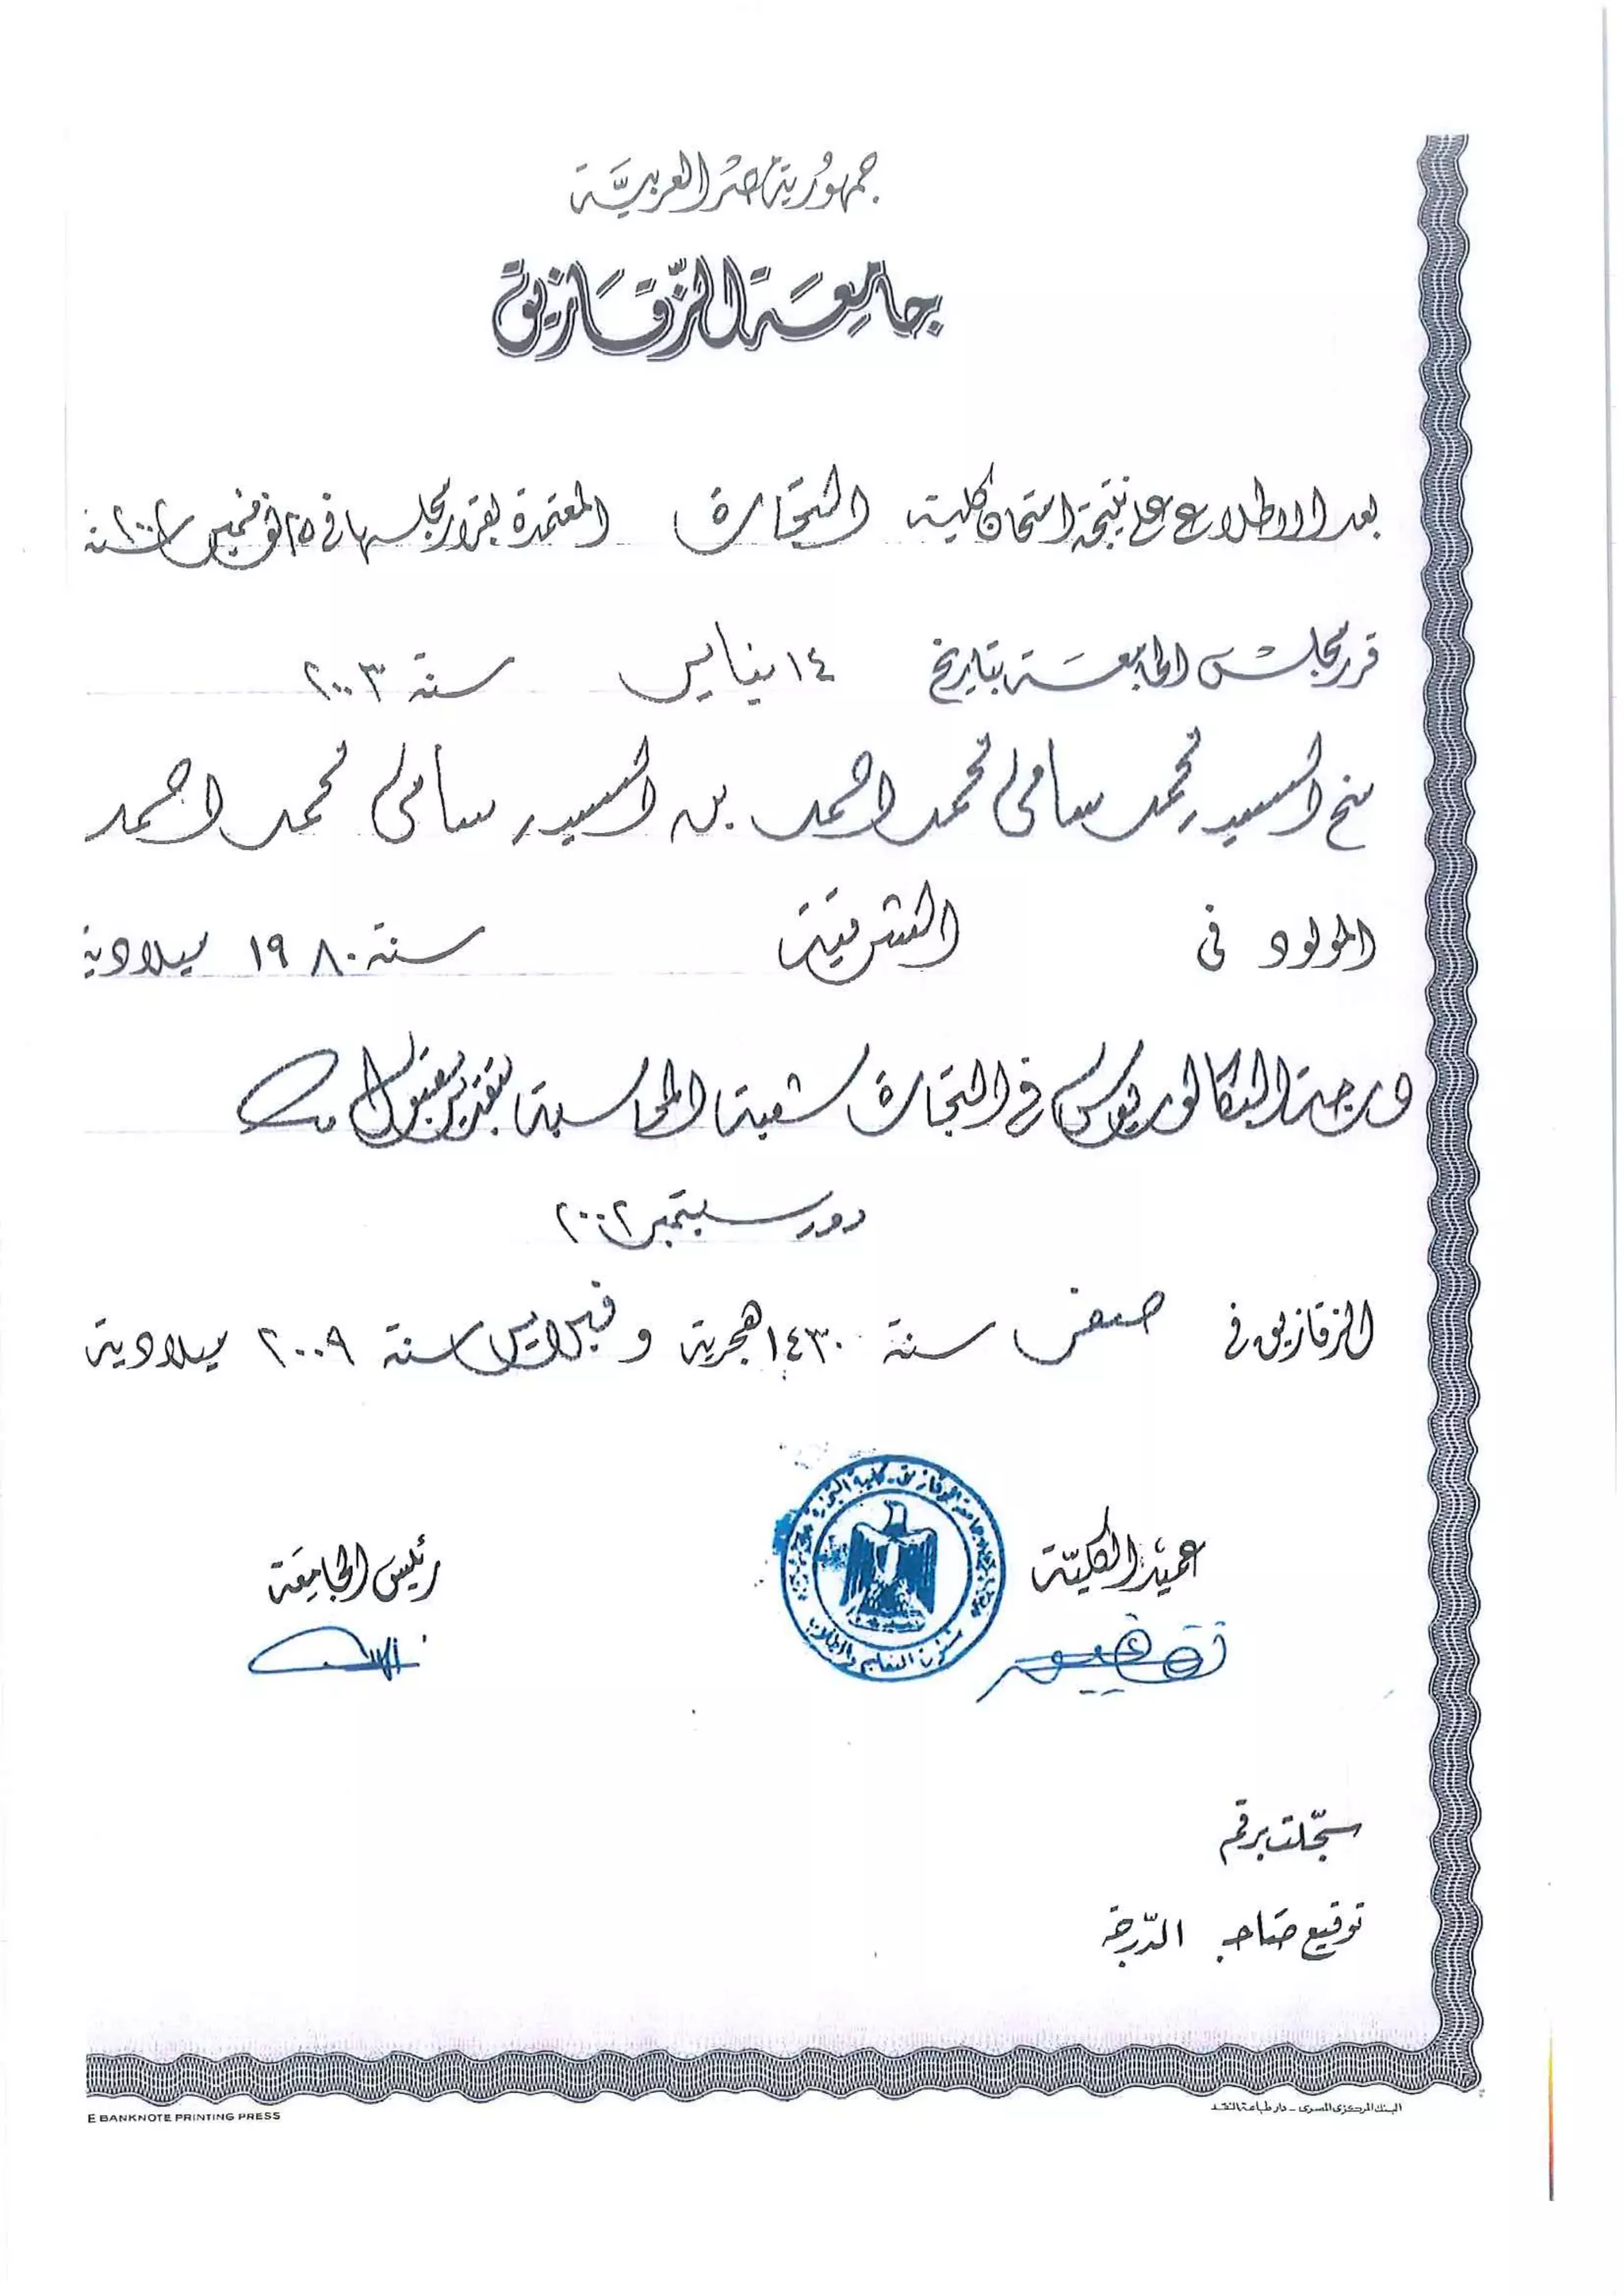 جمهورية مصر العربية
جامعة الزقازيق
بعد الاطلاع على نتيجة امتحان كلية التجارة المعتمدة بقرار مجلسها في ٢٥ نوفمبر سنة ٢٠٠٢
قرر مجلس الجامعة بتاريخ ١٤ يناير سنة ٢٠٠٣
منح السيد / محمد سامى محمد احمد بن السيد / سامى محمد احمد
المولود فى الشرقية سنة ١٩٨٠ ميلادية
درجة البكالوريوس في التجارة شعبة المحاسبة بتقدير مقبول
دور سبتمبر ٢٠٠٢
الزقازيق في صفر سنة ١٤٣٠ هجرية و فبراير سنة ٢٠٠٩ ميلادية
جامعة الزقازيق - كلية التجارة
شئون التعليم والطلاب
عميد الكلية
رئيس الجامعة
سجّلت برقم
توقيع صاحب الدّرجة
E BANKNOTE PRINTING PRESS
البنك المركزى المصرى - دار طباعة النقد